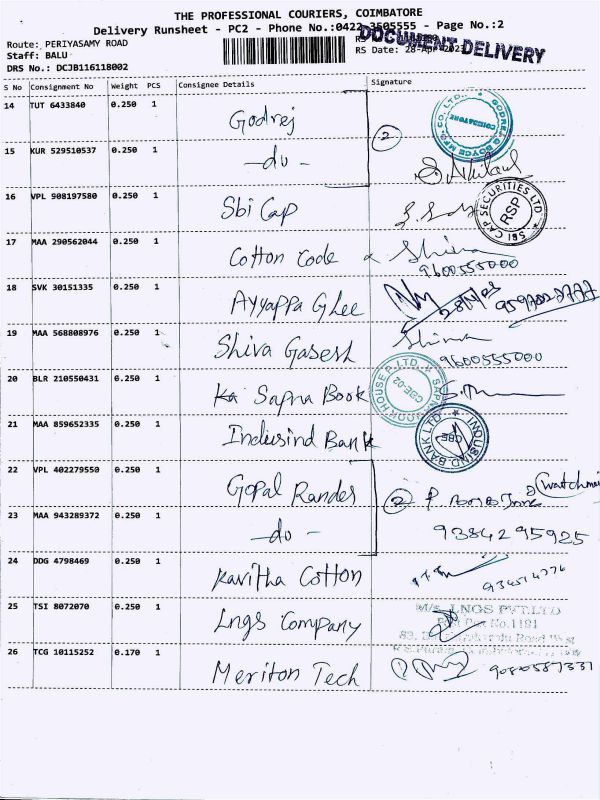 THE PROFESSIONAL COURIERS, COIMBATORE
Delivery Runsheet - PC2 - Phone No.:0422-3505555 - Page No.:2
Route: PERIYASAMY ROAD
DOCUMENT DELIVERY
Staff: BALU
RS Date: 28-Apr-2023
DRS No.: DCJB116118002
S No Consignment No Weight PCS Consignee Details Signature
14 TUT 6433840 0.250 1 Godrej
GODREJ & BOYCE MFG. CO. LTD.
COIMBATORE
2
15 KUR 529510537 0.250 1 -do-
16 VPL 908197580 0.250 1 Sbi Cap
SBI CAP SECURITIES LTD
RSP
17 MAA 290562044 0.250 1 Cotton Code Shiva
9600555000
18 SVK 30151335 0.250 1 Ayyappa Ghee
19 MAA 568808976 0.250 1 Shiva Gasesh Shiva
9600555000
20 BLR 210550431 0.250 1 Ka Sapna Book
SAPNA BOOK HOUSE P. LTD.
CBE-02
21 MAA 859652335 0.250 1 Indusind Bank
INDUSIND BANK LTD.
CBE
22 VPL 402279550 0.250 1 Gopal Randes
2
23 MAA 943289372 0.250 1 -do- 9384295925
24 DDG 4798469 0.250 1 Kavitha Cotton
25 TSI 8072070 0.250 1 Lngs Company
M/s. LNGS PVT.LTD
No.1181
26 TCG 10115252 0.170 1 Meriton Tech 9080587331